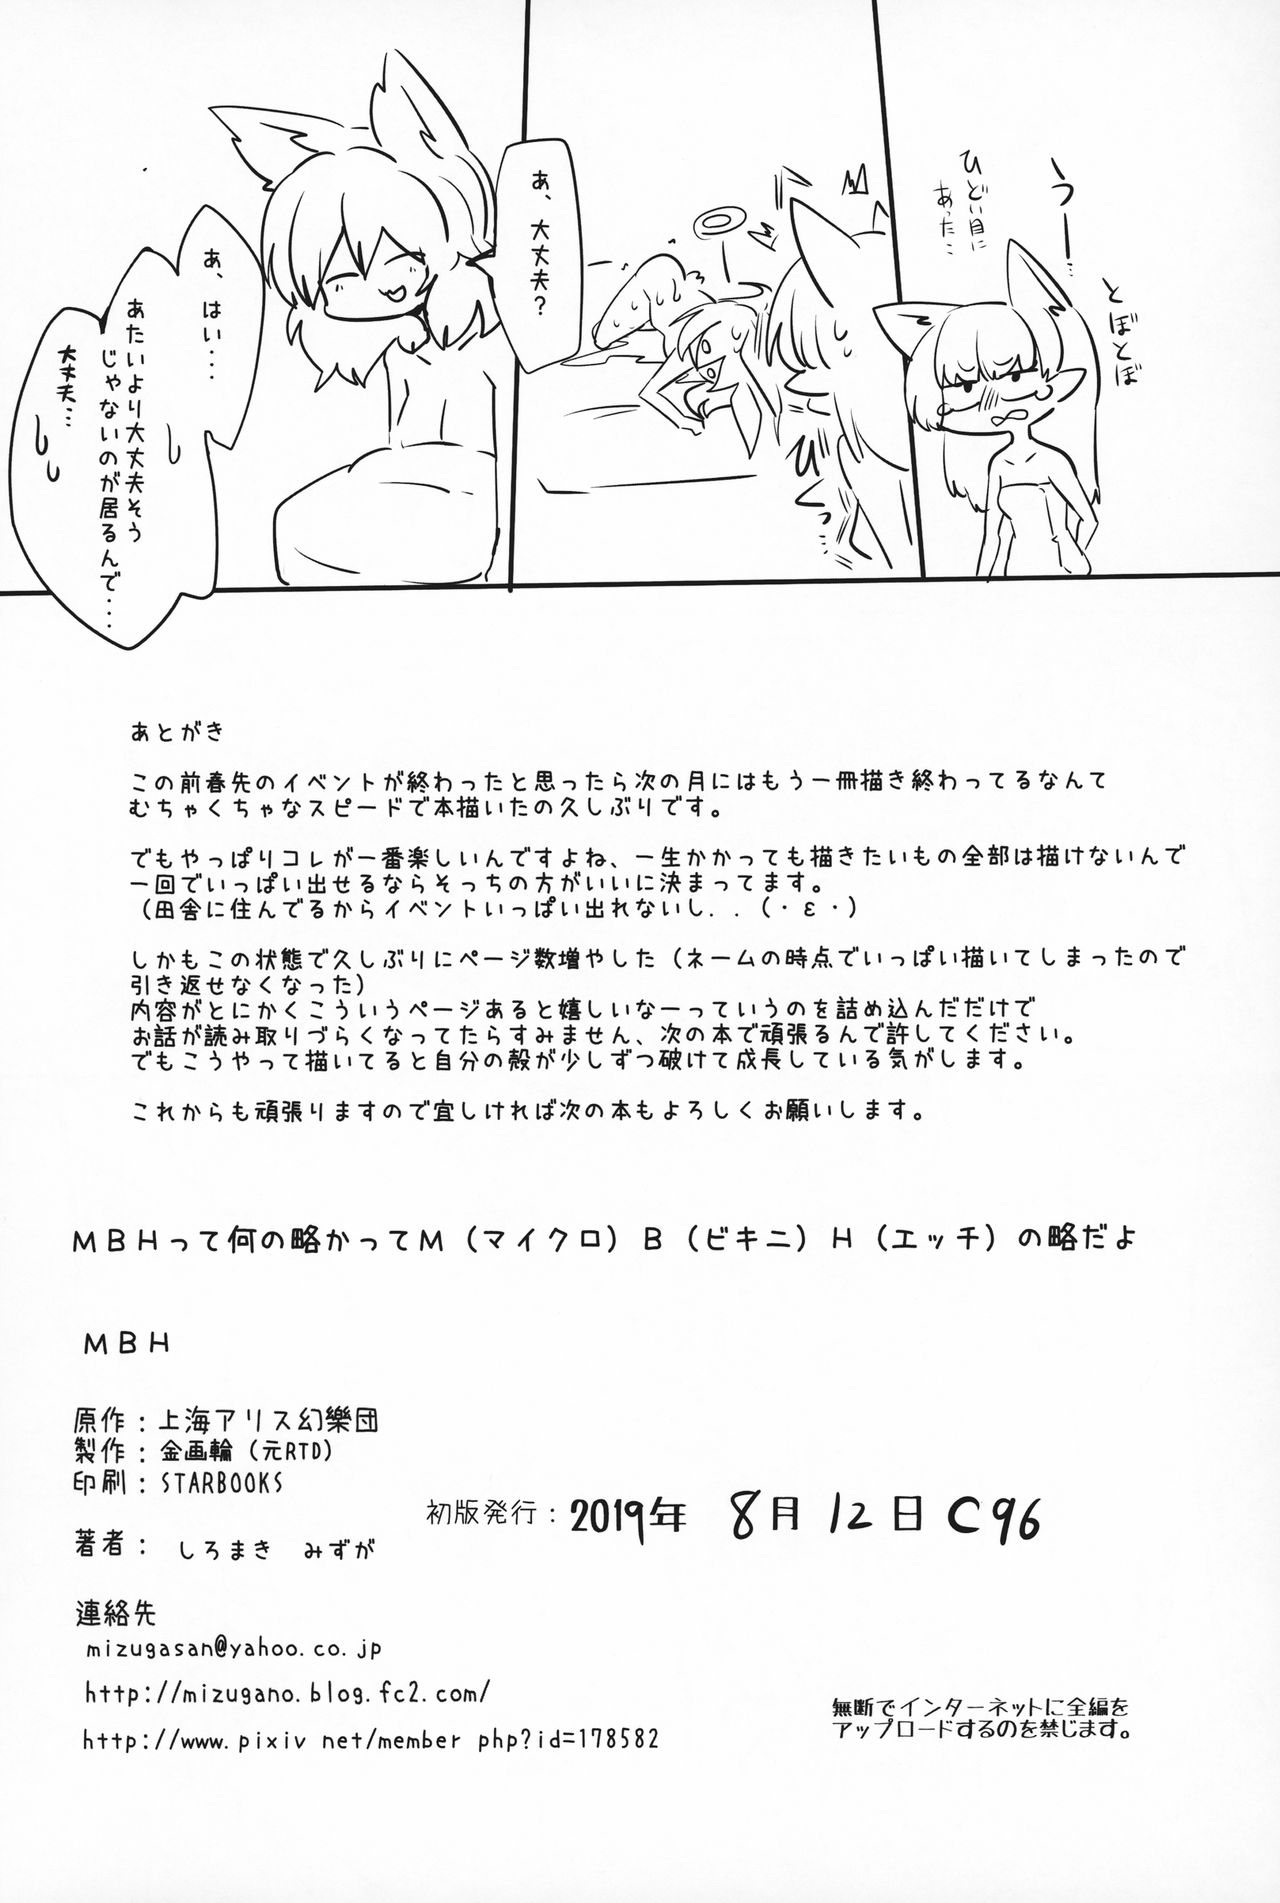 うー…
ひどい目に
あった…
とぼとぼ
びくっ
あ、大丈夫?
あ、はい...
あたいより大丈夫そう
じゃないのが居るんで....
大丈夫...
あとがき
この前春先のイベントが終わったと思ったら次の月にはもう一冊描き終わってるなんて
むちゃくちゃなスピードで本描いたの久しぶりです。
でもやっぱりコレが一番楽しいんですよね、一生かかっても描きたいもの全部は描けないんで
一回でいっぱい出せるならそっちの方がいいに決まってます。
(田舎に住んでるからイベントいっぱい出れないし. . (・ε・)
しかもこの状態で久しぶりにページ数増やした(ネームの時点でいっぱい描いてしまったので
引き返せなくなった)
内容がとにかくこういうページあると嬉しいなーっていうのを詰め込んだだけで
お話が読み取りづらくなってたらすみません、次の本で頑張るんで許してください。
でもこうやって描いてると自分の殻が少しずつ破けて成長している気がします。
これからも頑張りますので宜しければ次の本もよろしくお願いします。
MBHって何の略かってM(マイクロ)B(ビキニ)H(エッチ)の略だよ
MBH
原作:上海アリス幻樂団
製作:金画輪(元RTD)
印刷:STARBOOKS
初版発行:2019年 8月12日 C96
著者: しろまき みずが
連絡先
mizugasan@yahoo.co.jp
http://mizugano.blog.fc2.com/
http://www.pixiv net/member php?id=178582
無断でインターネットに全編を
アップロードするのを禁じます。